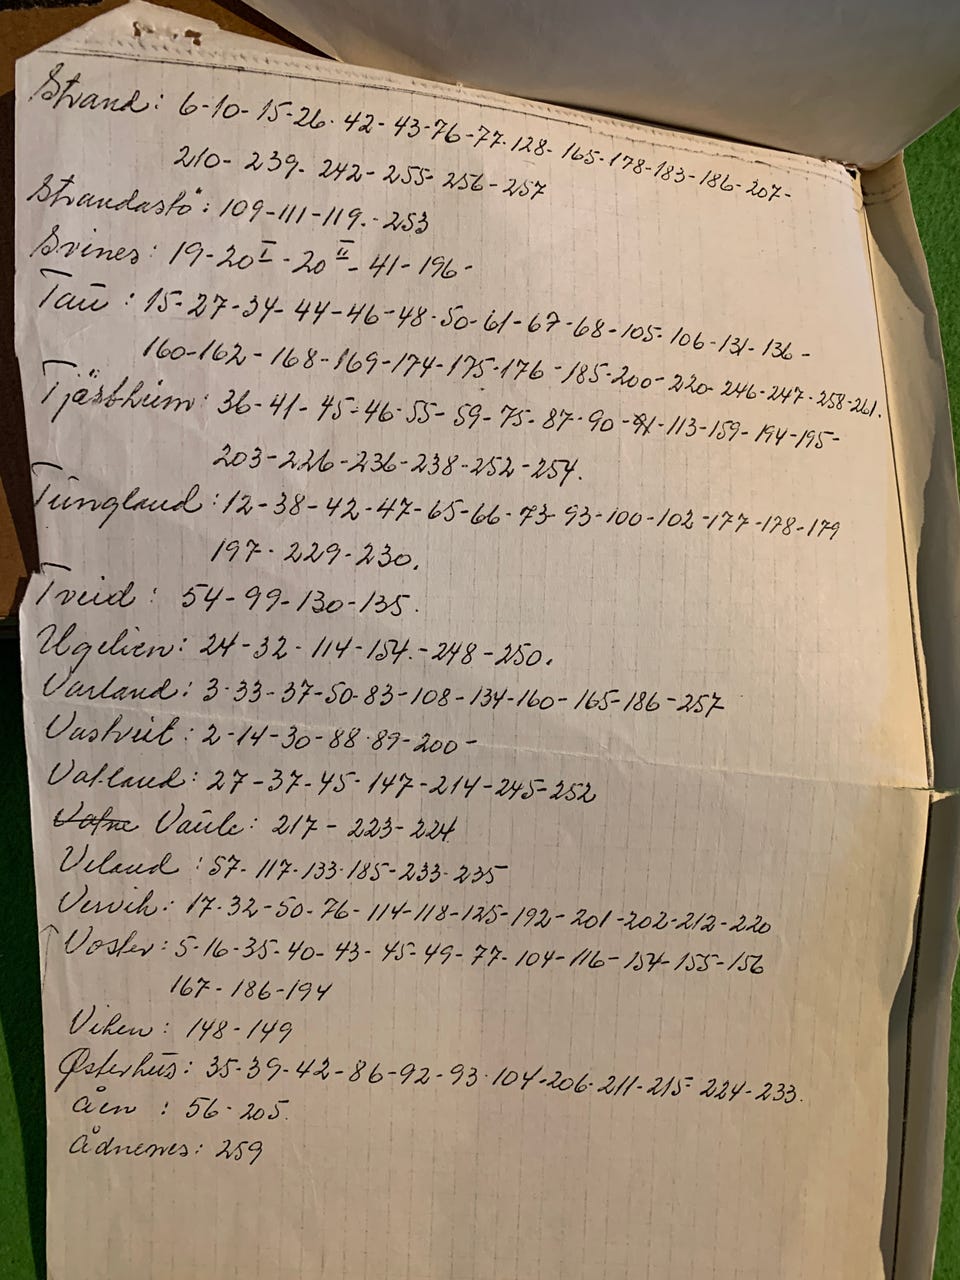 Strand: 6-10-15-26-42-43-76-77-128-165-178-183-186-207-
210-239-242-255-256-257
Strandastö: 109-111-119.-253
Svines: 19-20 I -20 II -41-196-
Tau: 15-27-34-44-46-48-50-61-67-68-105-106-131-136-
160-162-168-169-174-175-176-185-200-220-246-247-258-261.
Tjøstheim: 36-41-45-46-55-59-75-87-90-91-113-159-194-195-
203-226-236-238-252-254.
Tungland: 12-38-42-47-65-66-73-93-100-102-177-178-179
197-229-230.
Tveid: 54-99-130-135.
Ugelien: 24-32-114-154.-248-250.
Varland: 3-33-37-50-83-108-134-160-165-186-257
Vastveit: 2-14-30-88-89-200-
Vatland: 27-37-45-147-214-245-252
Vatne Vaule: 217-223-224
Veland: 57-117-133-185-233-235
Vervik: 17-32-50-76-114-118-125-192-201-202-212-220
Voster: 5-16-35-40-43-45-49-77-104-116-154-155-156
167-186-194
Viken: 148-149
Østerhus: 35-39-42-86-92-93-104-206-211-215-224-233.
Åen: 56-205.
Ådnenes: 259